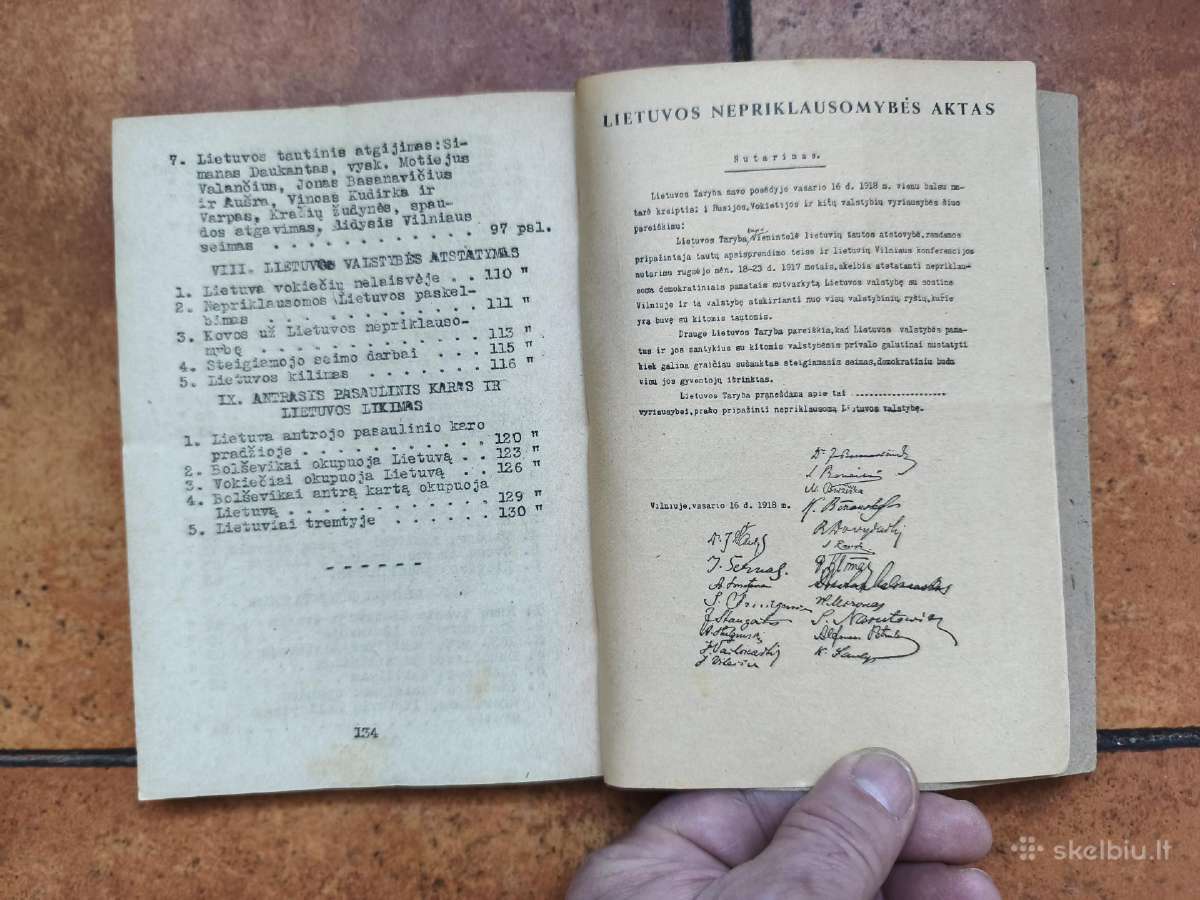 7. Lietuvos tautinis atgijimas:Si-
manas Daukantas, vysk. Motiejus
Valančius, Jonas Basanavičius
ir Aušra, Vincas Kudirka ir
Varpas, Kražių žudynės, spau-
dos atgavimas, didysis Vilniaus
seimas . . . . . . . . . . . . 97 psl.
VIII. LIETUVOS VALSTYBĖS ATSTATYMAS
1. Lietuva vokiečių nelaisvėje . . 110 "
2. Nepriklausomos Lietuvos paskel-
bimas . . . . . . . . . . . . . 111 "
3. Kovos už Lietuvos nepriklauso-
mybę . . . . . . . . . . . . . 113 "
4. Steigiamojo seimo darbai . . . 115 "
5. Lietuvos kilimas . . . . . . . 116 "
IX. ANTRASIS PASAULINIS KARAS IR
LIETUVOS LIKIMAS
1. Lietuva antrojo pasaulinio karo
pradžioje . . . . . . . . . . . 120 "
2. Bolševikai okupuoja Lietuvą . . 123 "
3. Vokiečiai okupuoja Lietuvą . . . 126 "
4. Bolševikai antrą kartą okupuoja
Lietuvą . . . . . . . . . . . . 129 "
5. Lietuviai tremtyje . . . . . . 130 "
- - - - - -
134
LIETUVOS NEPRIKLAUSOMYBĖS AKTAS
Nutarimas.
Lietuvos Taryba savo posėdyje vasario 16 d. 1918 m. vienu balsu nu-
tarė kreiptis: į Rusijos, Vokietijos ir kitų valstybių vyriausybes šiuo
pareiškimu:
Lietuvos Taryba, kaipo vienintelė lietuvių tautos atstovybė, remdamos
pripažintąja tautų apsisprendimo teise ir lietuvių Vilniaus konferencijos
nutarimu rugsėjo mėn. 18-23 d. 1917 metais, skelbia atstatanti nepriklau-
somą demokratiniais pamatais sutvarkytą Lietuvos valstybę su sostine
Vilniuje ir tą valstybę atskirianti nuo visų valstybinių ryšių, kurie
yra buvę su kitomis tautomis.
Drauge Lietuvos Taryba pareiškia, kad Lietuvos valstybės pama-
tus ir jos santykius su kitomis valstybėmis privalo galutinai nustatyti
kiek galima greičiau sušauktas steigiamasis seimas, demokratiniu būdu
visų jos gyventojų išrinktas.
Lietuvos Taryba pranešdama apie tai ..................
vyriausybei, prašo pripažinti nepriklausomą Lietuvos valstybę.
Vilniuje, vasario 16 d. 1918 m.
J. Šernas.
S. Narutowicz
skelbiu.lt